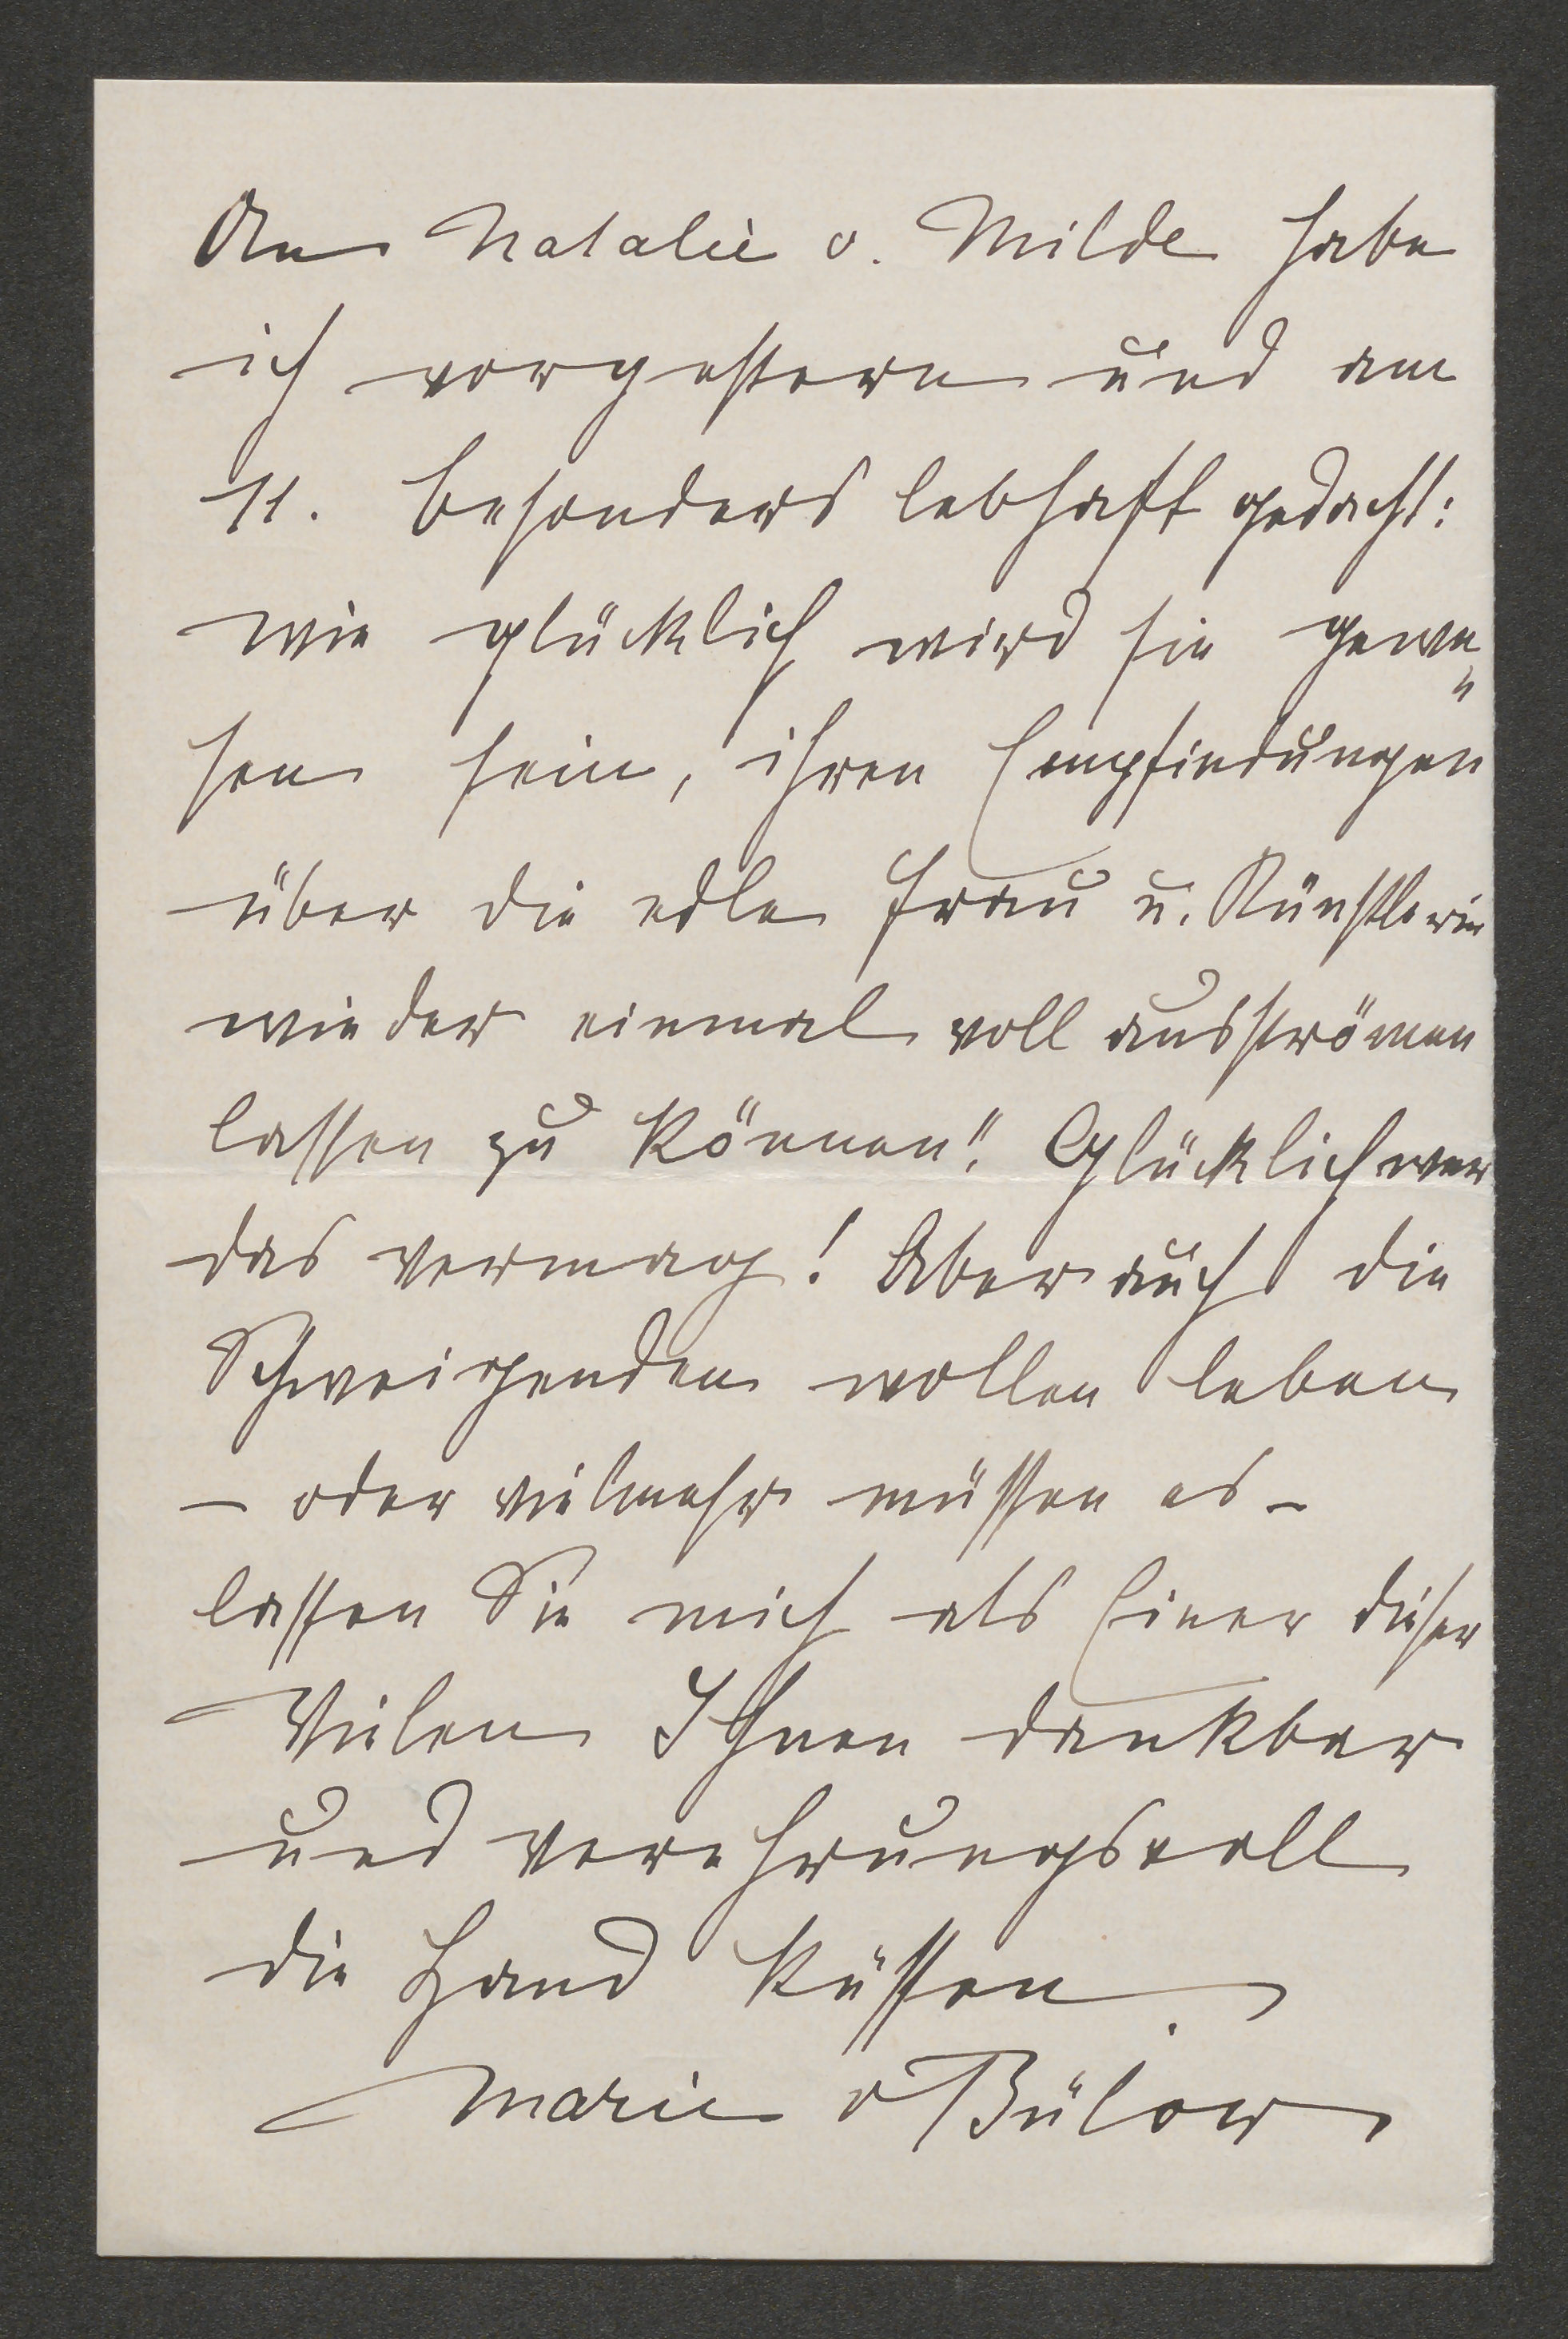 An Natalie v. Milde habe
ich vorgestern und am
11. besonders lebhaft gedacht:
wie glücklich wird sie gewe-
sen sein, ihren Empfindungen
über die edle Frau u. Künstlerin
wieder einmal voll ausströmen
lassen zu können! Glücklich wer
das vermag! Aber auch die
Schweigenden wollen leben
– oder vielmehr müssen es –
lassen Sie mich als Einer dieser
Vielen Ihnen dankbar
und verehrungsvoll
die Hand küssen.
Marie v Bülow